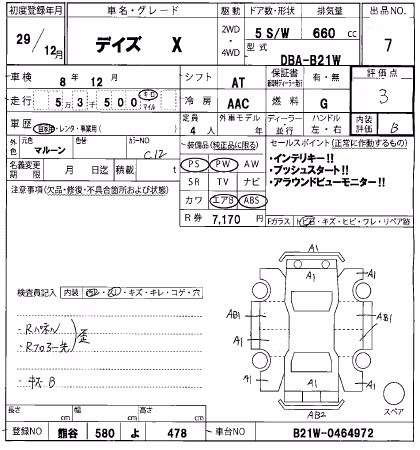 初度登録年月 車名・グレード 駆動 ドア数・形状 排気量 出品NO.
29/12月 デイズ X 2WD・4WD 5 S/W 660 cc 7
型式 DBA-B21W
車検 8年 12月 シフト AT 保証書 有・無 評価点 3
走行 5万3千500 キロ マイル 冷房 AAC 燃料 G 内装評価 B
車歴 自家用・レンタ・事業用( ) 定員 4人 外車モデル 年 ディーラー・並行 ハンドル 左・右
外色 元色 マルーン カラーNO C12
名義変更期限 月 日迄 積載 t
装備品(純正品に限る)
PS PW AW
SR TV ナビ
カワ エアB ABS
R券 7,170円
セールスポイント(正常に作動するもの)
・インテリキー!!
・プッシュスタート!!
・アラウンドビューモニター!!
Fガラス トビ石・キズ・ヒビ・ワレ・リペア跡
注意事項(欠品・修復・不具合箇所および状態)
検査員記入 内装 ・キズ・キレ・コゲ・穴
・Rパネル
・Rフロアー先
歪
・キズB
A1
A1 A1
AB1 AB1
A1 A1
A1 A1
AB2
スペア
長さ cm 幅 cm 高さ cm
登録NO 熊谷 580 よ 478 車台NO B21W-0464972